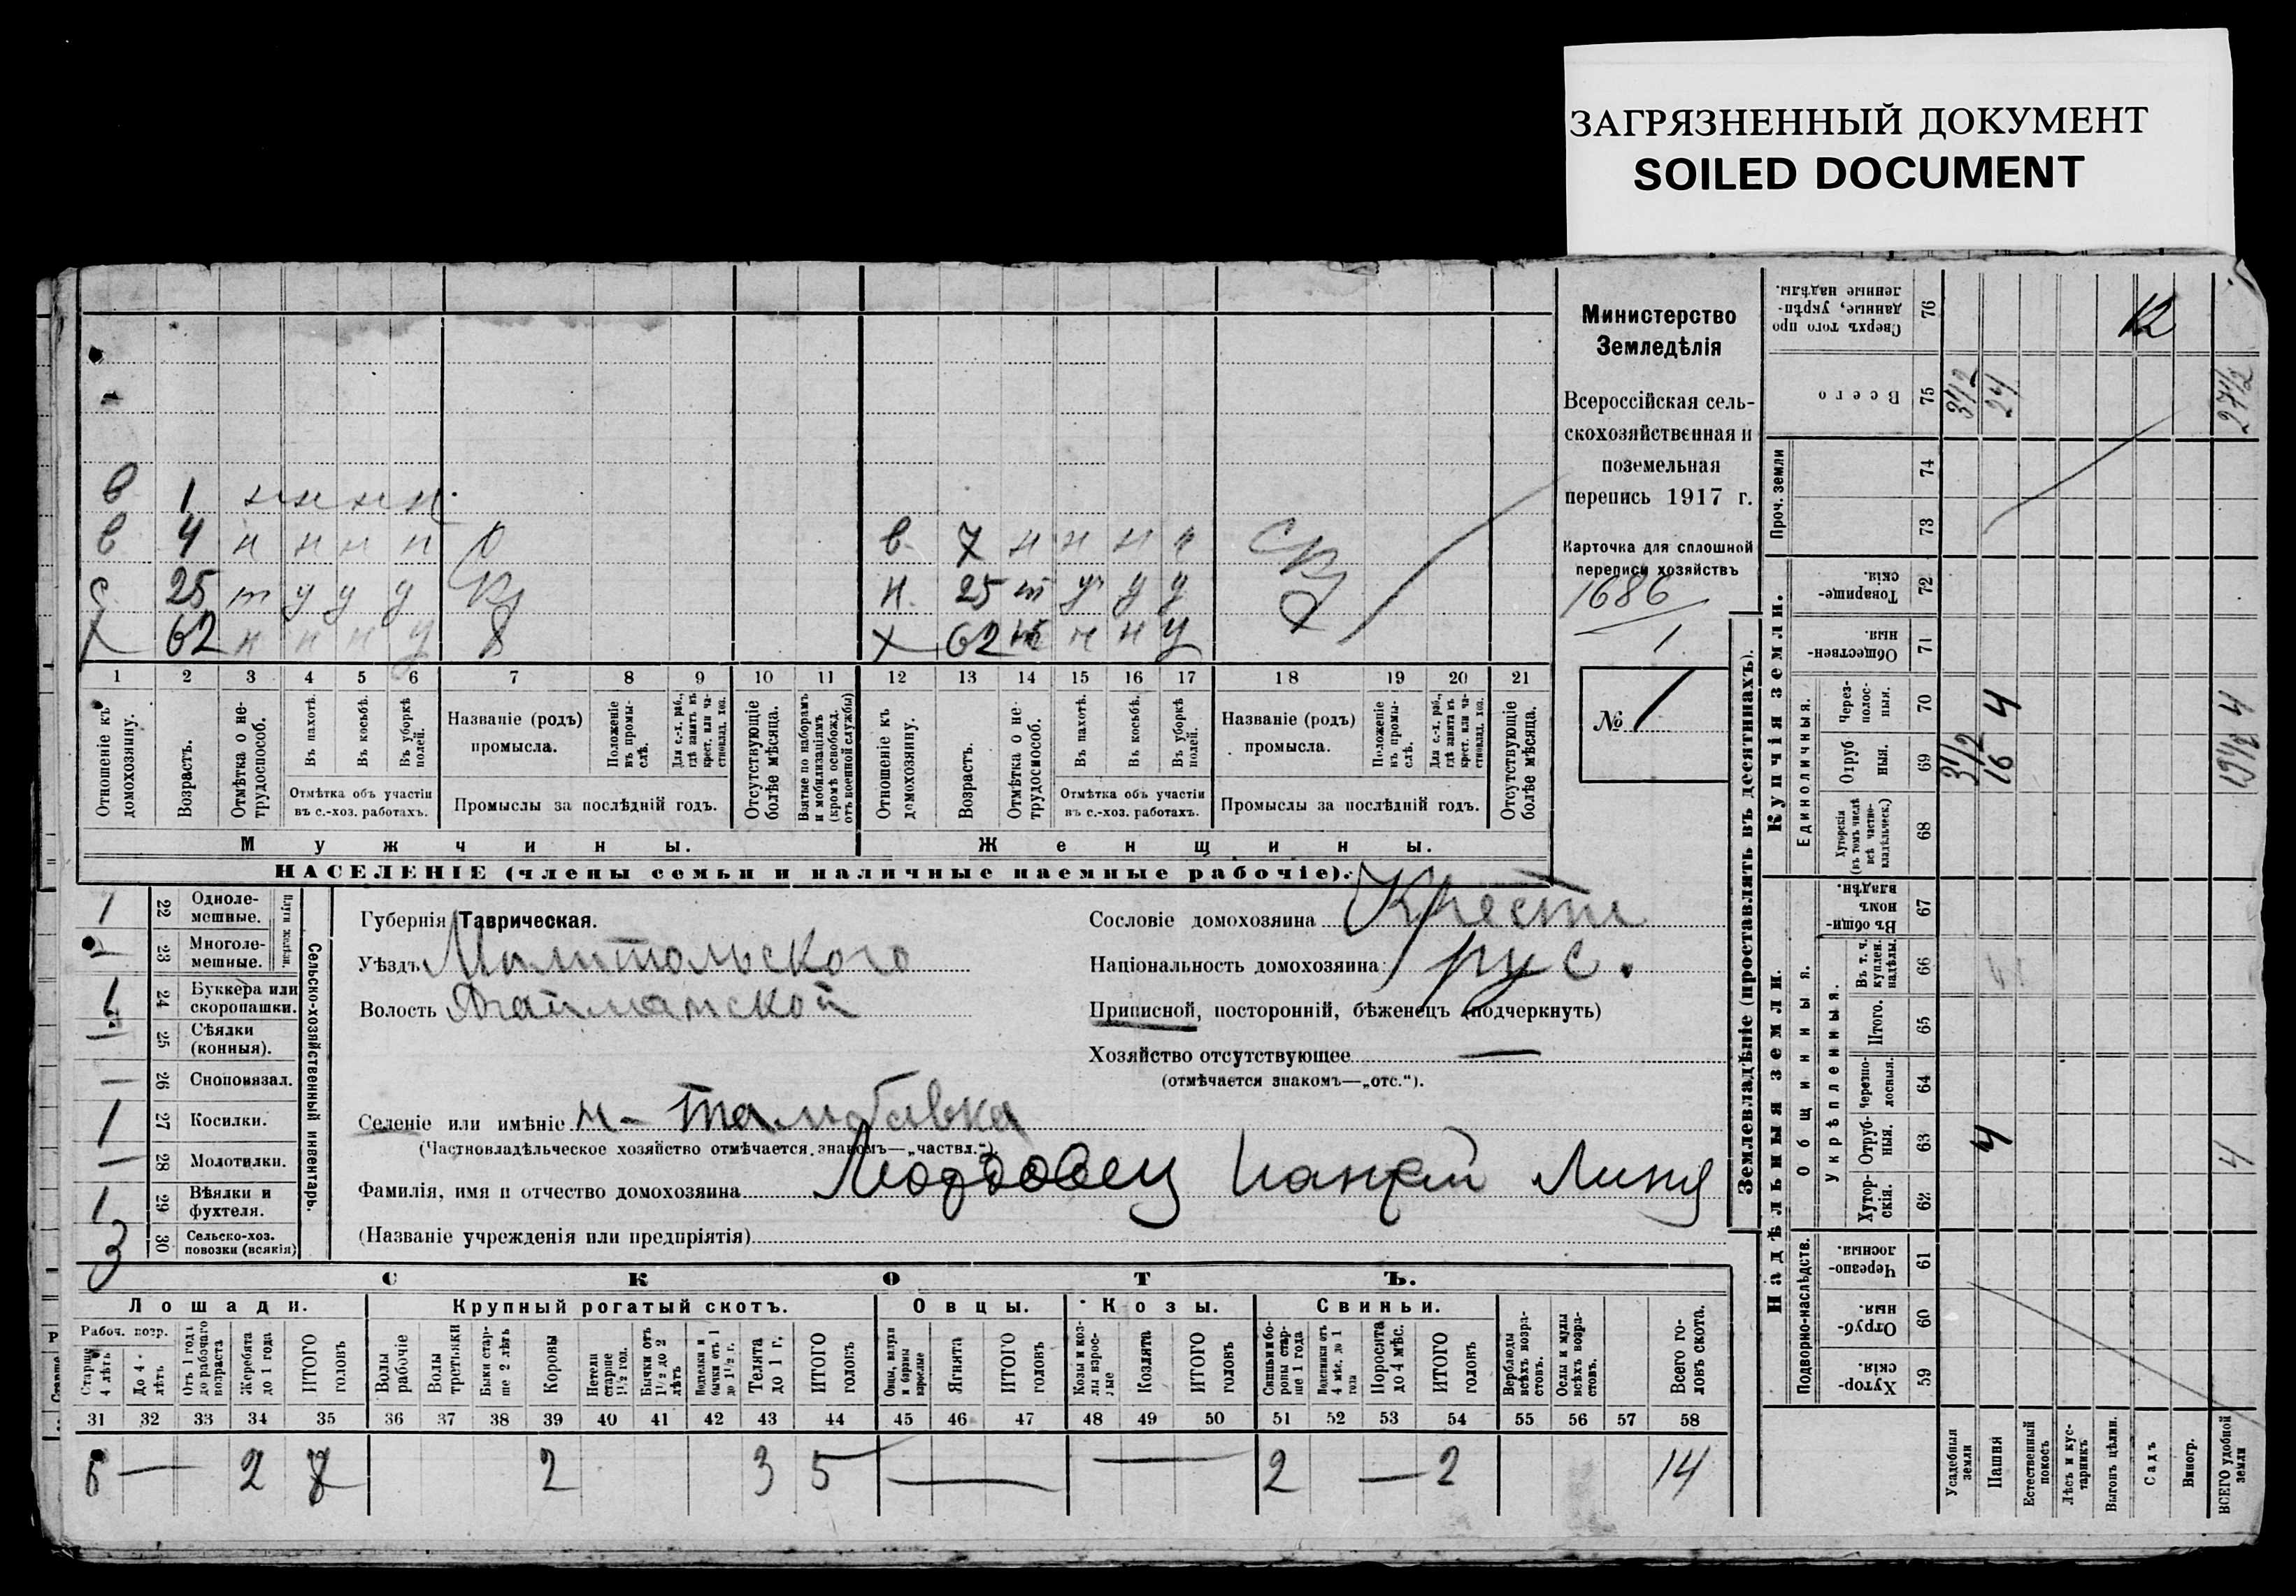 ЗАГРЯЗНЕННЫЙ ДОКУМЕНТ
SOILED DOCUMENT
Министерство
Земледѣлія
Всероссійская сель-
скохозяйственная и
поземельная
перепись 1917 г.
Карточка для сплошной
переписи хозяйствъ
1686
1
№ 1
в 1 н н н н
в 4 н н н н
с 25 т у у у
х 62 н н н у
в 7 н н н н
н 25 т у у у
х 62 н н у
1 2 3 4 5 6 7 8 9 10 11 12 13 14 15 16 17 18 19 20 21
Отношеніе къ домохозяину.
Возрастъ.
Отмѣтка о не-трудоспособ.
Въ пахотѣ.
Въ косьбѣ.
Въ уборкѣ полей.
Отмѣтка объ участіи въ с.-хоз. работахъ.
Названіе (родъ) промысла.
Положеніе въ промы-слѣ.
Для с.-х. раб., гдѣ занятъ въ крест. или ча-стновлад. хоз.
Промыслы за послѣдній годъ.
Отсутствующіе болѣе мѣсяца.
Взятые по наборамъ и мобилизаціямъ (кромѣ освобожд. отъ военной службы)
Отношеніе къ домохозяину.
Возрастъ.
Отмѣтка о не-трудоспособ.
Въ пахотѣ.
Въ косьбѣ.
Въ уборкѣ полей.
Отмѣтка объ участіи въ с.-хоз. работахъ.
Названіе (родъ) промысла.
Положеніе въ промы-слѣ.
Для с.-х. раб., гдѣ занята въ крест. или ча-стновлад. хоз.
Промыслы за послѣдній годъ.
Отсутствующіе болѣе мѣсяца.
Мужчины. Женщины.
НАСЕЛЕНІЕ (члены семьи и наличные наемные рабочіе).
Сельско-хозяйственный инвентарь.
Плуги желѣзн.
1 22 Одноле-мешные.
23 Многоле-мешные.
1 24 Буккера или скоропашки.
25 Сѣялки (конныя).
— 26 Сноповязал.
1 27 Косилки.
— 28 Молотилки.
1 29 Вѣялки и фухтеля.
3 30 Сельско-хоз. повозки (всякія)
Губернія Таврическая.
Уѣздъ Мелитопольского
Волость
Сословіе домохозяина Крест
Національность домохозяина рус.
Приписной, посторонній, бѣженецъ (подчеркнуть)
Хозяйство отсутствующее —
(отмѣчается знакомъ—„отс.“).
Селеніе или имѣніе
(Частновладѣльческое хозяйство отмѣчается знакомъ—„частвл.“).
Фамилія, имя и отчество домохозяина Мордовец
(Названіе учрежденія или предпріятія)
СКОТЪ.
Лошади. Крупный рогатый скотъ. Овцы. Козы. Свиньи.
Рабоч. возр.
Старше 4 лѣтъ
До 4 лѣтъ
Отъ 1 года до рабочаго возраста
Жеребята до 1 года
ИТОГО головъ
Волы рабочіе
Волы третьяки
Быки стар-ше 2 лѣтъ
Коровы
Нетели старше 1½ год.
Бычки отъ 1½ до 2 лѣтъ
Подтелки и бычки отъ 1 до 1½ г.
Телята до 1 г.
ИТОГО головъ
Овцы, валухи и бараны взрослые
Ягнята
ИТОГО головъ
Козы и коз-лы взрос-лые
Козлята
ИТОГО головъ
Свиньи и бо-ровы стар-ше 1 года
Подсвинки отъ 4 мѣс. до 1 года
Поросята до 4 мѣс.
ИТОГО головъ
Верблюды всѣхъ возра-стовъ.
Ослы и мулы всѣхъ возра-стовъ.
Всего го-ловъ скота.
31 32 33 34 35 36 37 38 39 40 41 42 43 44 45 46 47 48 49 50 51 52 53 54 55 56 57 58
— 2 2 3 5 — — 2 — 2 14
Землевладѣніе (проставлять въ десятинахъ).
Купчія земли.
Надѣльныя земли.
Сверхъ того про-данные, укрѣп-ленные надѣлы. 76
Всего 75
Проч. земли 74 73
Товарище-скія. 72
Обществен-ныя. 71
Единоличныя.
Через-полос-ныя. 70
Отруб-ныя. 69
Хуторскія (въ томъ числѣ всѣ частно-владѣльческ.) 68
Общинныя.
Въ общин-номъ владѣн. 67
Укрѣпленныя.
Въ т. ч. куплен. надѣлы. 66
Итого. 65
Черезпо-лосныя. 64
Отруб-ныя. 63
Хутор-скія. 62
Подворно-наслѣдств.
Черезпо-лосныя. 61
Отруб-ныя. 60
Хутор-скія. 59
Усадебныя земли
Пашня
Естественный покосъ
Лѣсъ и кус-тарникъ
Выгонъ цѣлин.
Садъ
Виногр.
ВСЕГО удобной земли
12
3½ 24 27½
4 4
3½ 16 19½
4 4